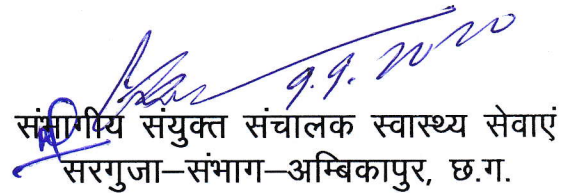 9.9.2020
संभागीय संयुक्त संचालक स्वास्थ्य सेवाएं
सरगुजा–संभाग–अम्बिकापुर, छ.ग.